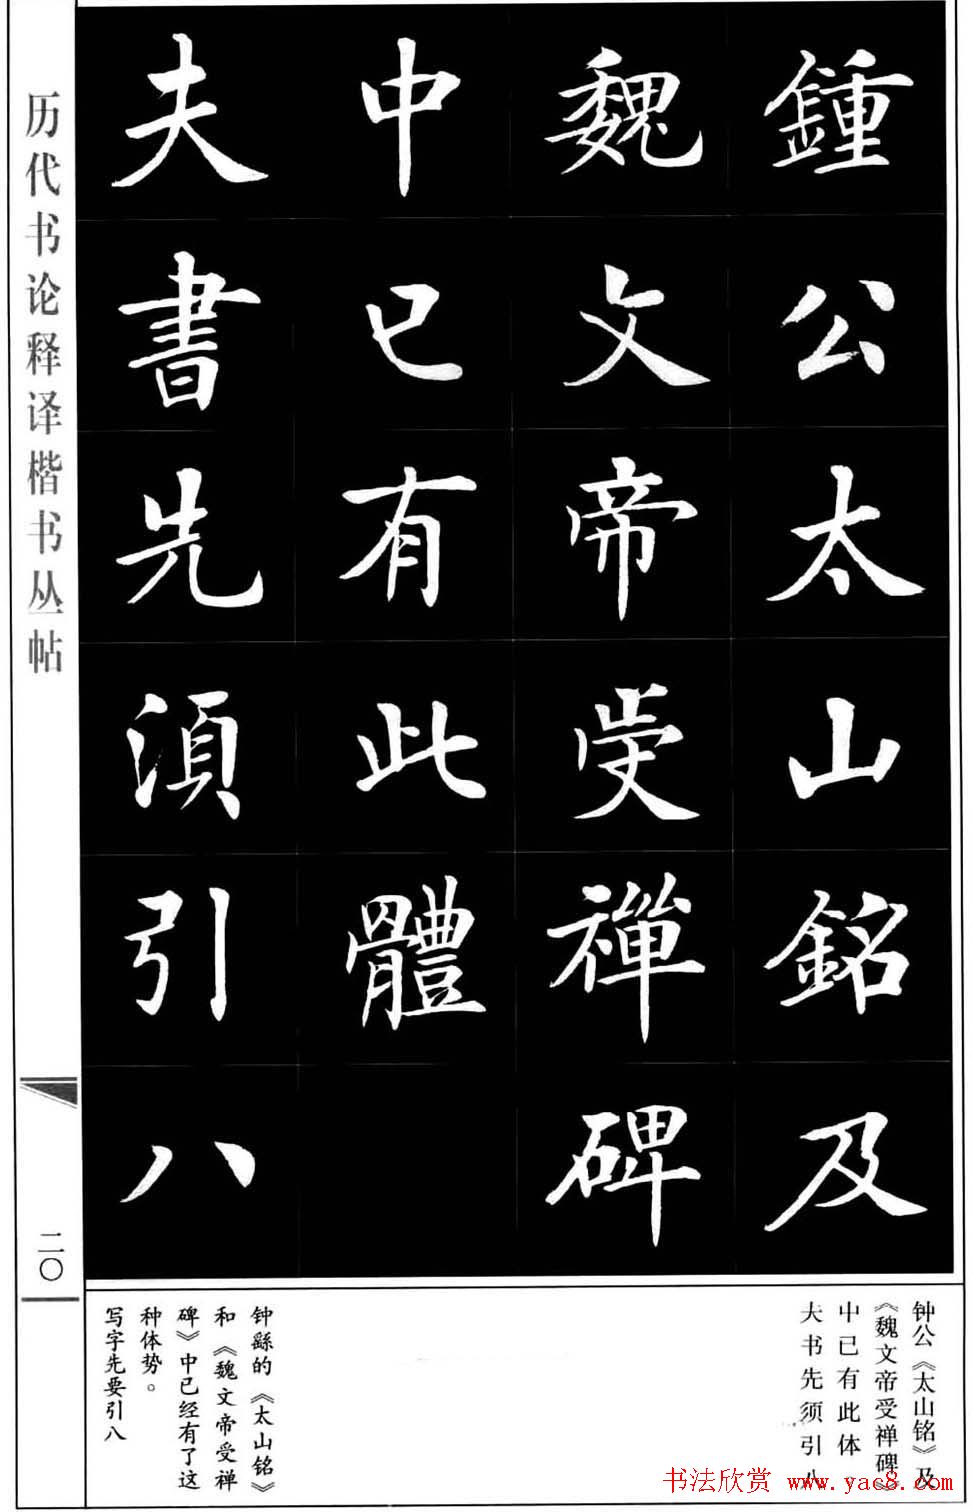 鍾公太山銘及
魏文帝受禪碑
中已有此體
夫書先須引八
历代书论释译楷书丛帖
二〇
钟公《太山铭》及
《魏文帝受禅碑》
中已有此体
夫书先须引八
钟繇的《太山铭》
和《魏文帝受禅
碑》中已经有了这
种体势。
写字先要引八
书法欣赏 www.yac8.com